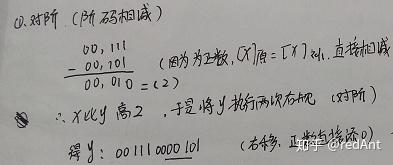 ①.对阶.(阶码相减)
00,111
- 00,101 (因为为正数,[X]原=[X]补,直接相减
00,010 =(2)
∴ X比y高2,于是将y执行两次右规 (对阶)
得y: 00 111 0000 101 (右移,正数直接添0)
知乎 @redAnt